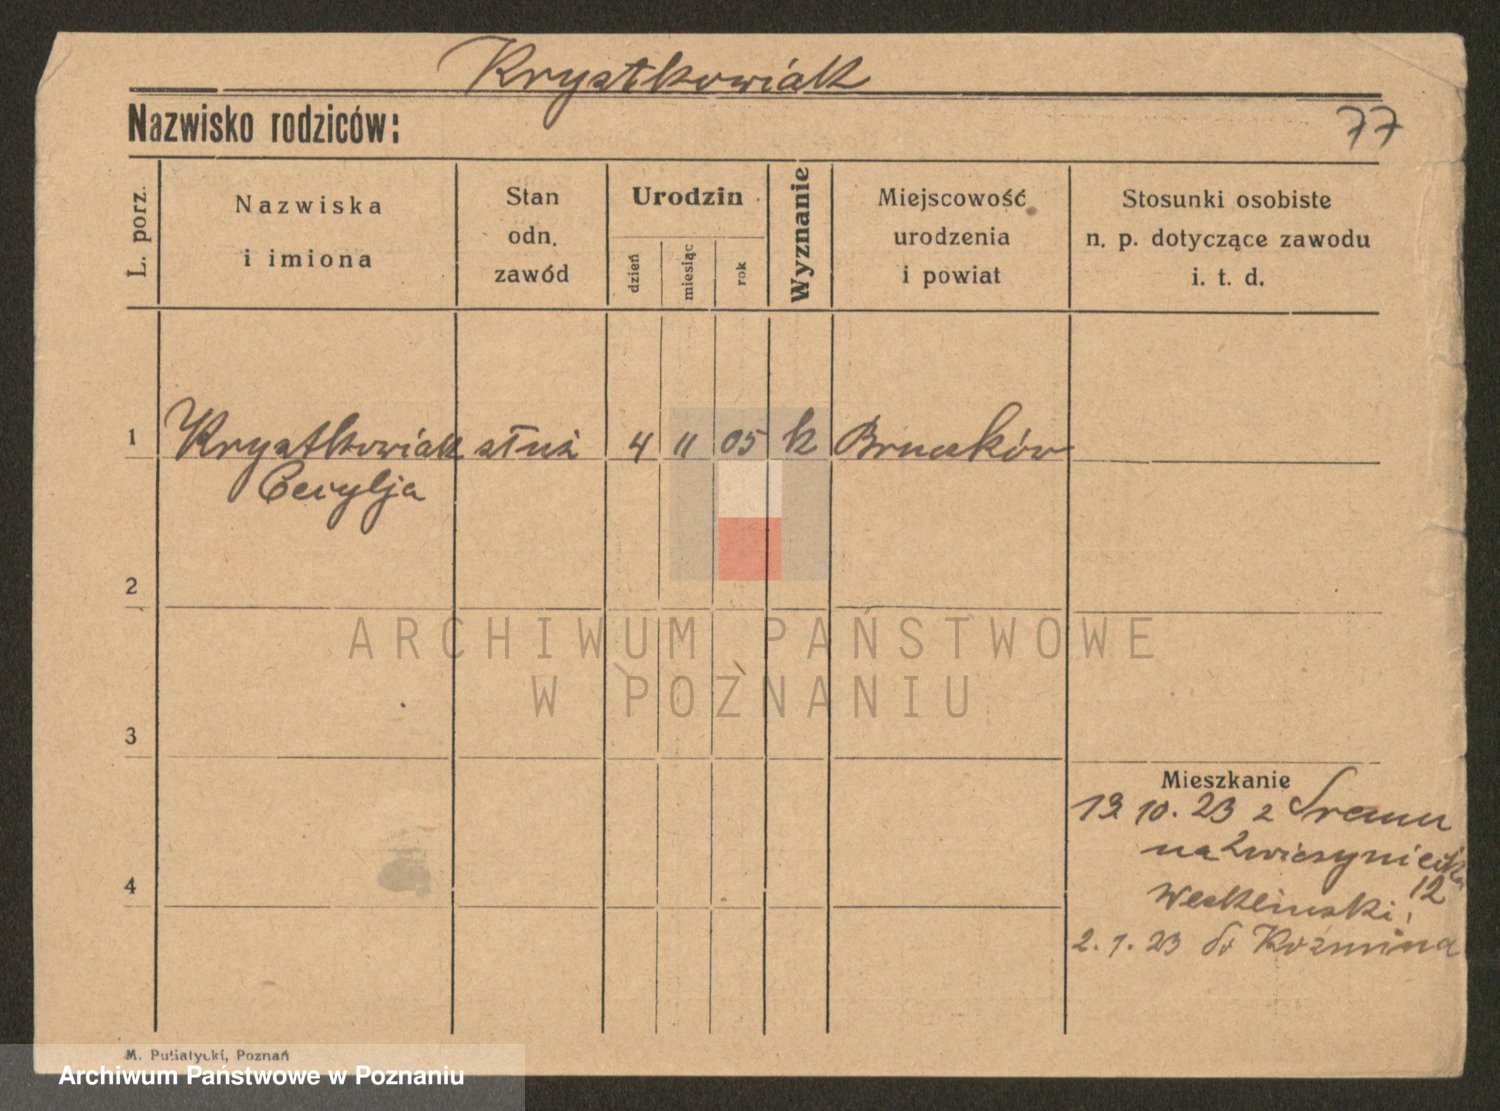 Krystkowiak
Nazwisko rodziców:
77
L. porz.
Nazwiska
i imiona
Stan
odn.
zawód
Urodzin
dzień
miesiąc
rok
Wyznanie
Miejscowość
urodzenia
i powiat
Stosunki osobiste
n. p. dotyczące zawodu
i. t. d.
1 Krystkowiak służ 4 11 05 k
Cecylja
2
ARCHIWUM PAŃSTWOWE
W POZNANIU
3
Mieszkanie
13 10. 23 z Śremu
na Zwierzyniecka
12
4
2. 1. 23 do Koźmina
M. Putiatycki, Poznań
Archiwum Państwowe w Poznaniu